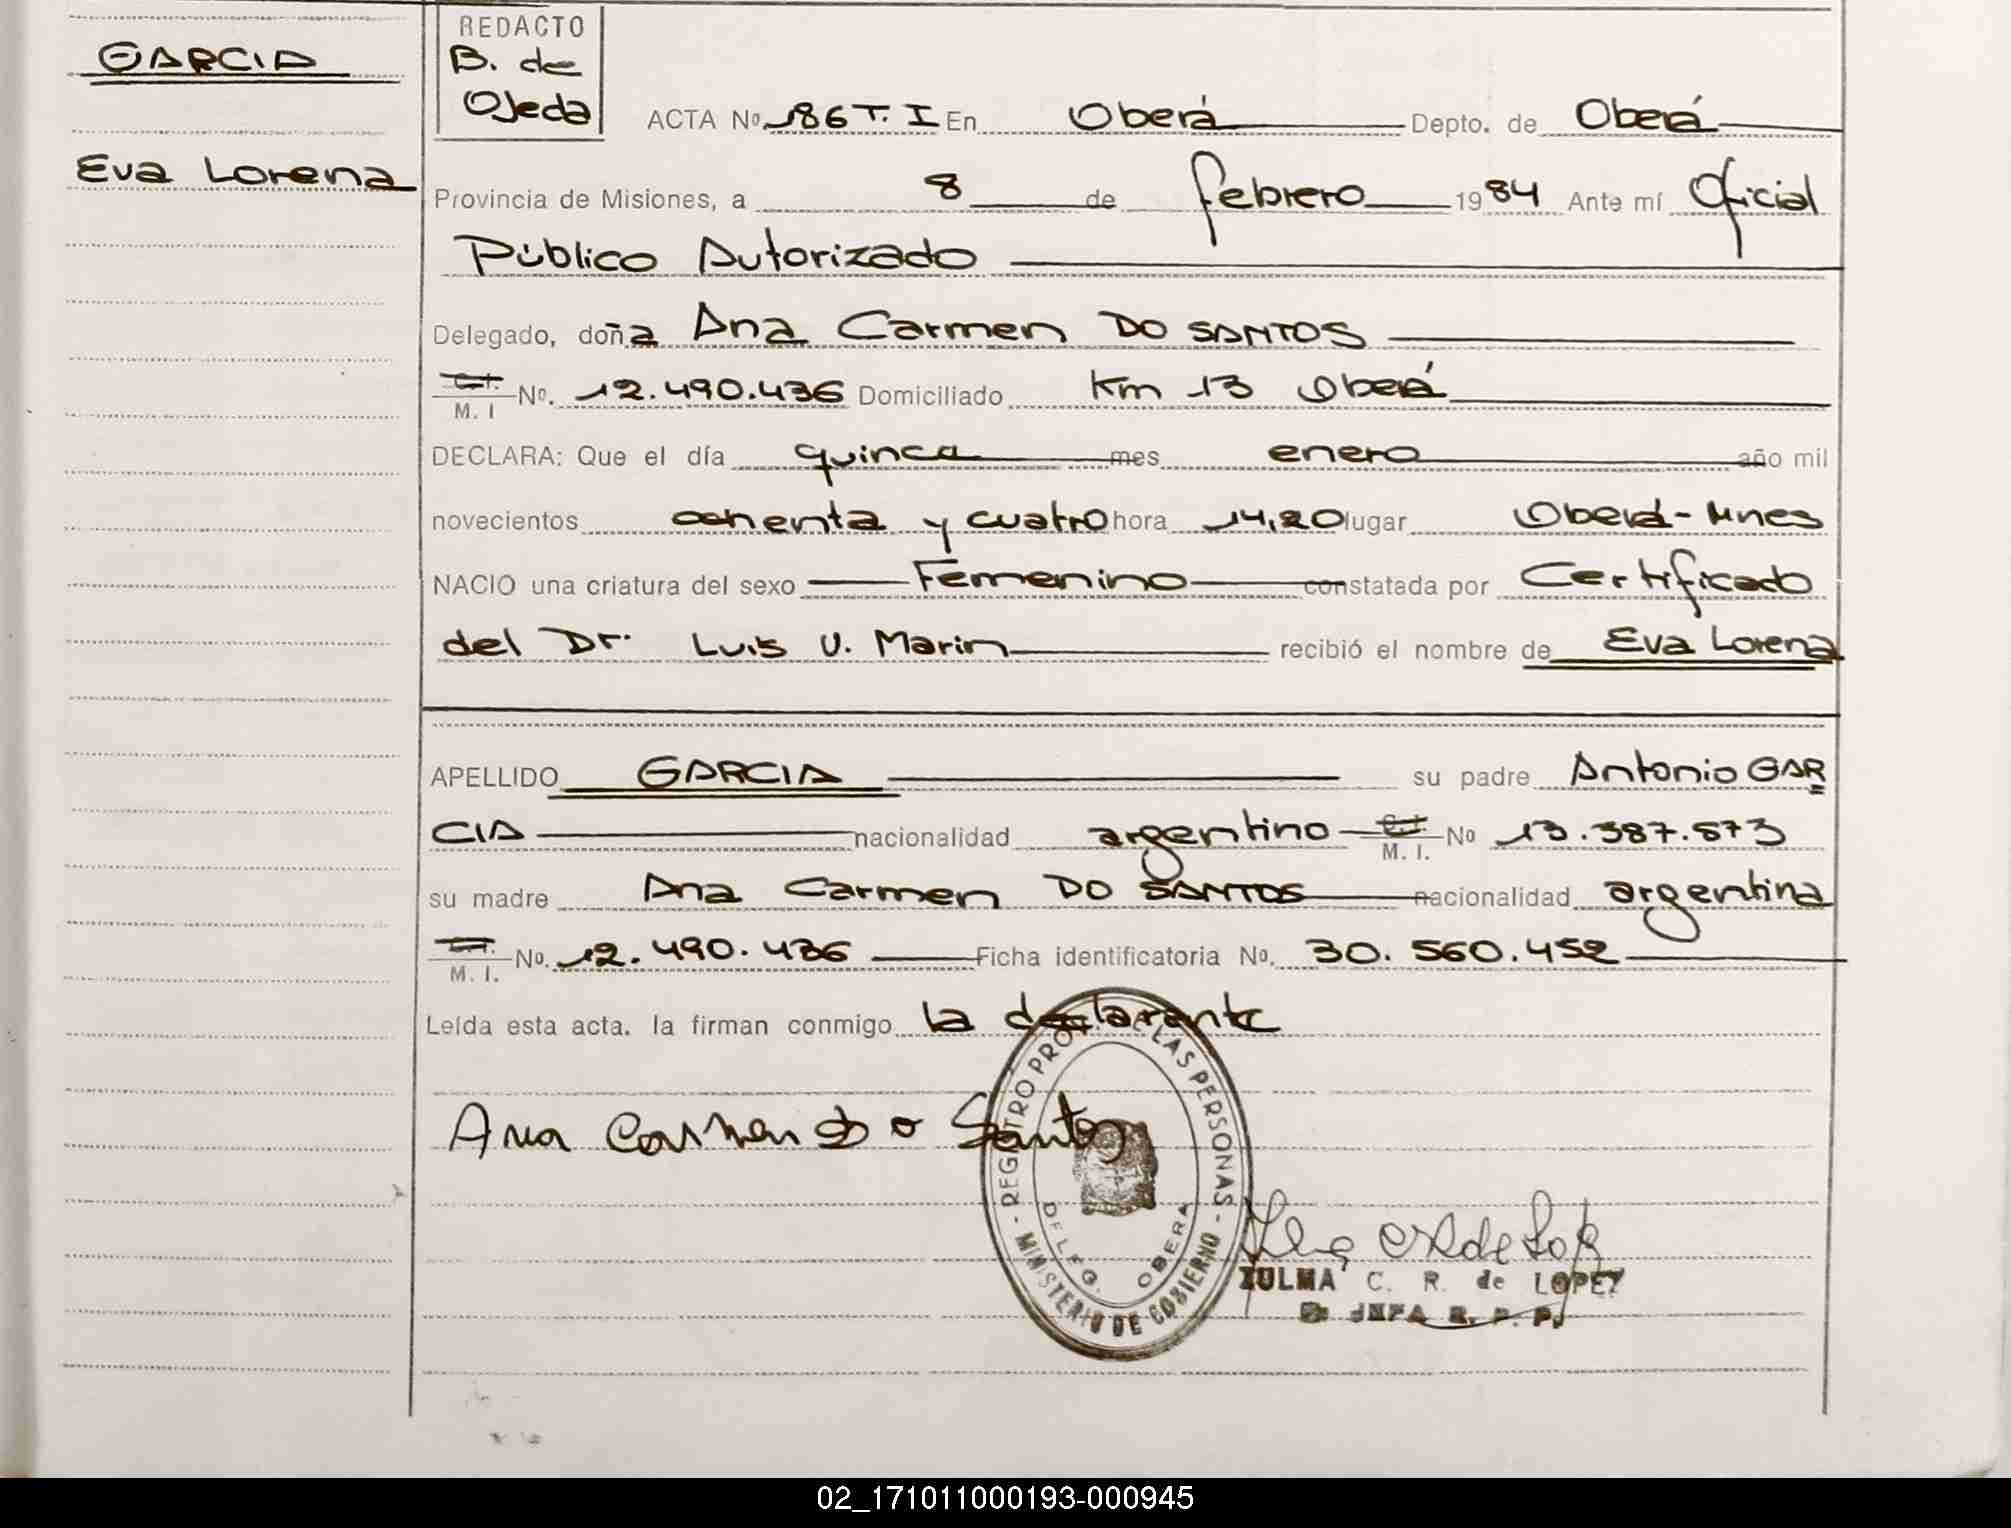 GARCIA
Eva Lorena
REDACTO
B. de
Ojeda
ACTA Nº 186 T. I En Oberá Depto. de Oberá
Provincia de Misiones, a 8 de febrero 1984 Ante mí Oficial
Público Autorizado
Delegado, doña Ana Carmen DO SANTOS
C.I.
M. I Nº. 12.490.436 Domiciliado Km 13 Oberá
DECLARA: Que el día quince mes enero año mil
novecientos ochenta y cuatro hora 14,20 lugar Oberá-Mnes
NACIO una criatura del sexo Femenino constatada por Certificado
del Dr. Luis V. Marin recibió el nombre de Eva Lorena
APELLIDO GARCIA su padre Antonio GAR
CIA nacionalidad argentino C.I. M. I. Nº 13.387.573
su madre Ana Carmen DO SANTOS nacionalidad argentina
C.I.
M. I. Nº. 12.490.436 Ficha identificatoria Nº. 30.560.452
Leída esta acta. la firman conmigo la declarante
Ana Carmen do Santos
REGISTRO PROV. DE LAS PERSONAS - MINISTERIO DE GOBIERNO -
DELEG. OBERA
ZULMA C. R. de LOPEZ
JEFA R. P. P.
02_171011000193-000945